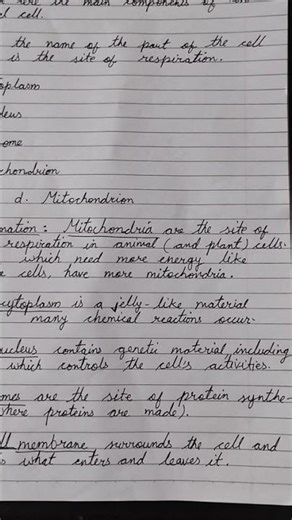 here are the main components of
cell.
the name of the part of the cell
is the site of respiration.
oplasm
leus
ome
chondrion
d. Mitochondrion
nation: Mitochondria are the site of
respiration in animal (and plant) cells.
which need more energy like
cells, have more mitochondria.
cytoplasm is a jelly-like material
many chemical reactions occur.
nucleus contains genetic material, including
which controls the cell's activities.
mes are the site of protein synthe-
where proteins are made).
ll membrane surrounds the cell and
s what enters and leaves it.